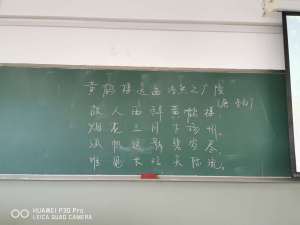 黄鹤楼送孟浩然之广陵
(唐 李白)
故人西辞黄鹤楼,
烟花三月下扬州。
孤帆远影碧空尽
唯见长江天际流。
HUAWEI P30 Pro
LEICA QUAD CAMERA